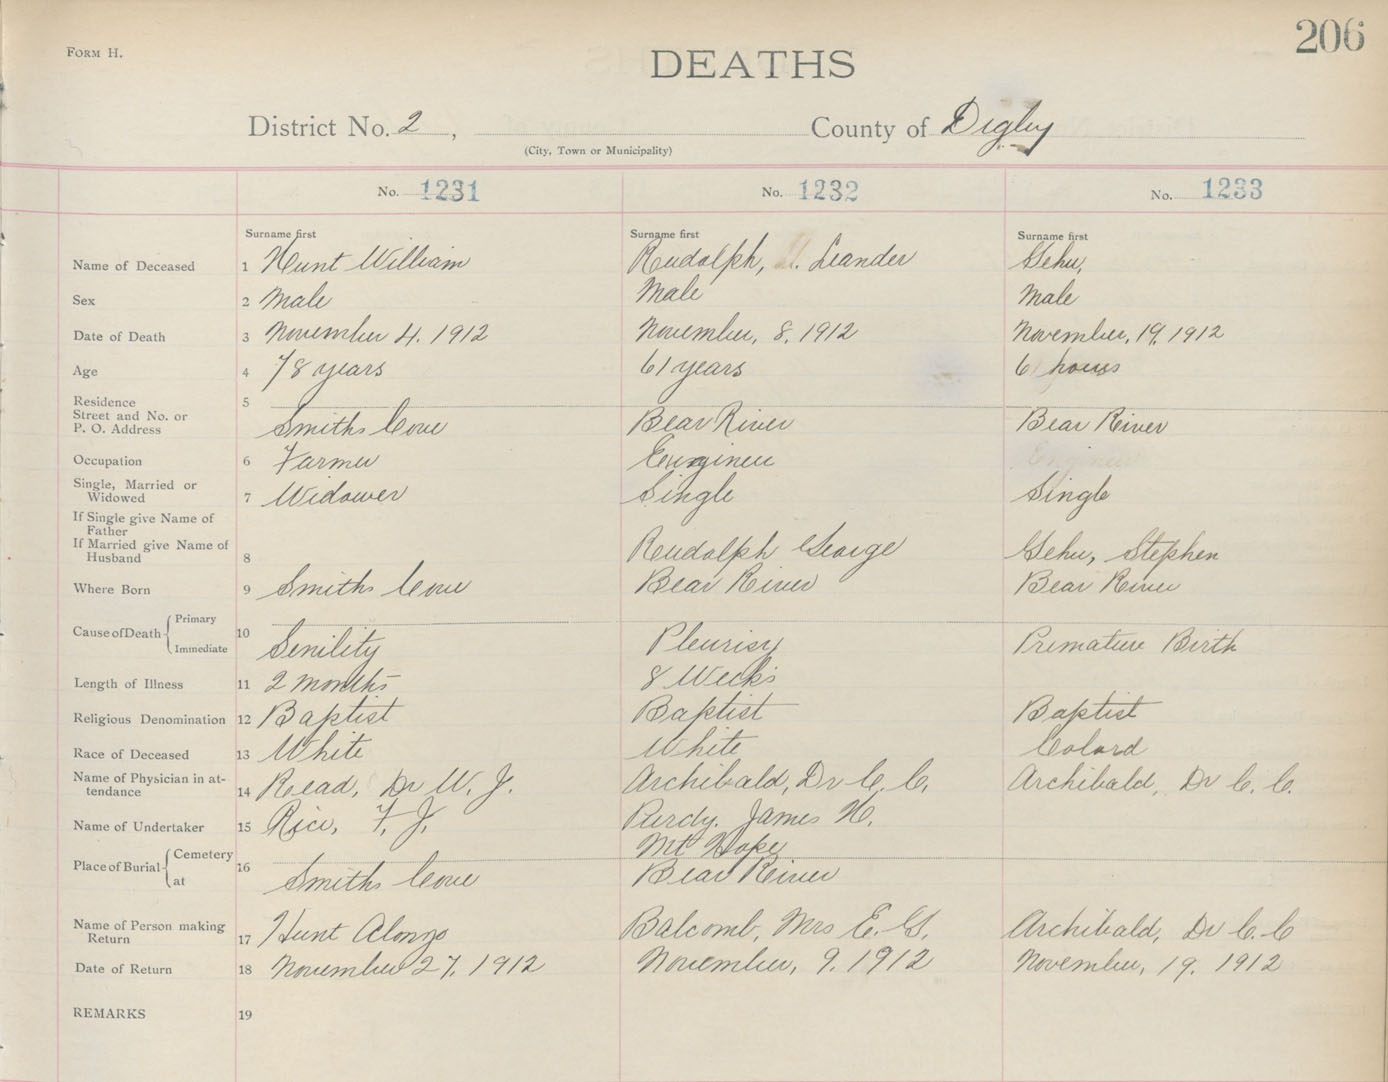 206
FORM H.
DEATHS
District No. 2 , County of Digby
(City, Town or Municipality)
No. 1231 No. 1232 No. 1233
Surname first Surname first Surname first
Name of Deceased 1 Hunt William Rudolph, Leander Gehu,
Sex 2 Male Male Male
Date of Death 3 November 4. 1912 November, 8. 1912 November, 19. 1912
Age 4 78 years 61 years 6 hours
Residence 5
Street and No. or
P. O. Address Smiths Cove Bear River Bear River
Occupation 6 Farmer Engineer
Single, Married or
Widowed 7 Widower Single Single
If Single give Name of
Father
If Married give Name of
Husband 8 Rudolph George Gehu, Stephen
Where Born 9 Smiths Cove Bear River Bear River
Cause of Death Primary
Immediate 10 Senility Pleurisy Premature Birth
Length of Illness 11 2 months 8 Weeks
Religious Denomination 12 Baptist Baptist Baptist
Race of Deceased 13 White White Colord
Name of Physician in at-
tendance 14 Read, Dr W. J. Archibald, Dr C. C. Archibald, Dr C. C.
Name of Undertaker 15 Rice, F. J. Purdy, James H.
Place of Burial Cemetery 16 Mt Hope
at Smiths Cove Bear River
Name of Person making
Return 17 Hunt Alonzo Balcomb, Mrs E. G. Archibald, Dr C. C
Date of Return 18 November 27. 1912 November, 9. 1912 November, 19. 1912
REMARKS 19